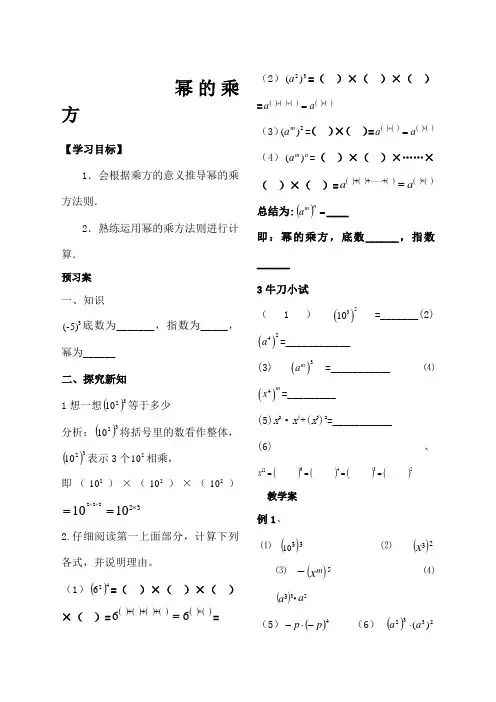 幂的乘
方
【学习目标】
1．会根据乘方的意义推导幂的乘
方法则．
2．熟练运用幂的乘方法则进行计
算．
预习案
一、知识
(-5)³底数为_______，指数为_____，
幂为______
二、探究新知
1想一想(10²)³等于多少
分析：(10²)³将括号里的数看作整体，
(10²)³表示3个10²相乘，
即（10²）×（10²）×（10²）
=10²⁺²⁺²=10²ˣ³
2.仔细阅读第一上面部分，计算下列
各式，并说明理由。
（1）(6²)⁴=（ ）×（ ）×（ ）
×（ ）=6^( )+( )+( )+( )=6^( )×( )=
（2）(a²)³=（ ）×（ ）×（ ）
=a^( )+( )+( )=a^( )×( )
（3）(a^m)²=（ ）×（ ）=a^( )+( )=a^( )×( )
（4）(a^m)^n=（ ）×（ ）×……×
（ ）×（ ）=a^( )+( )+……+( )=a^( )×( )
总结为:(a^m)^n=____
即：幂的乘方，底数______，指数
______
3牛刀小试
（1）(10³)⁵=_______(2)
(a⁴)²=____________
(3) (a^m)³=___________ ⑷
(x⁴)^m=_________
(5)x²·x⁴+(x³)²=___________
(6) 、
x¹²=( )⁶=( )⁴=( )³=( )²
教学案
例1、
⑴ (10³)³ ⑵ (x³)²
⑶ −(x^m)⁵ ⑷
(a³)³•a⁵
（5）−p·(−p)⁴ （6） (a²)³·(a³)²